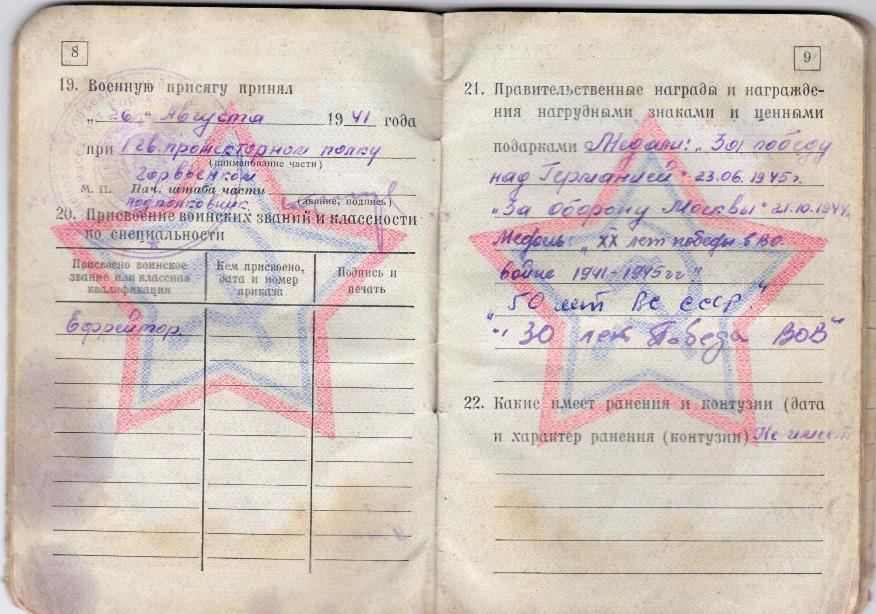 8
19. Военную присягу принял
„26“ Августа 1941 года
при 1 гв. прожекторном полку
(наименование части)
Горвоенком
М. П. Нач. штаба части
подполковник
(звание, подпись)
20. Присвоение воинских званий и классности
по специальности
Присвоено воинское звание или классная квалификация
Кем присвоено, дата и номер приказа
Подпись и печать
Ефрейтор
9
21. Правительственные награды и награжде-
ния нагрудными знаками и ценными
подарками Медали: „За победу
над Германией“ 23.06.1945г.
„За оборону Москвы“ 21.10.1944.
Медаль: „XX лет победы в ВО
войне 1941-1945гг“
„50 лет ВС СССР.“
„30 лет Победа ВОВ“
22. Какие имеет ранения и контузии (дата
и характер ранения (контузии) Не имеет